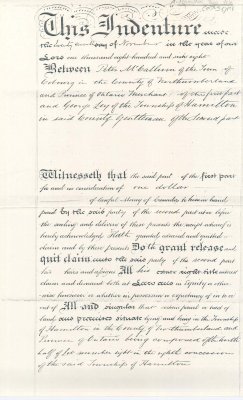 This Indenture made
the day of November in the year of our
Lord one thousand eight hundred and sixty eight
Between Peter McCallum of the Town of
Cobourg in the County of Northumberland
and Province of Ontario Merchant of the first part
and George Ley of the Township of Hamilton
in said County Gentleman of the second part
Witnesseth that the said part of the first part
for and in consideration of one dollar
of lawful Money of Canada to him in hand
paid by the said party of the second part at or before
the sealing and delivery of these presents the receipt whereof is
hereby acknowledged Hath granted released and quitted
claim and by these presents Doth grant release and
quit claim unto the said party of the second part
his heirs and assigns All his estate right title interest
claim and demand both at Law and in Equity or other
wise howsoever or whether in possession or expectancy of in to or
out of All and singular that certain parcel or tract of
land and premises situate lying and being in the Township
of Hamilton in the County of Northumberland and
Province of Ontario being composed of the South
half of Lot number eight in the eighth concession
of the said Township of Hamilton